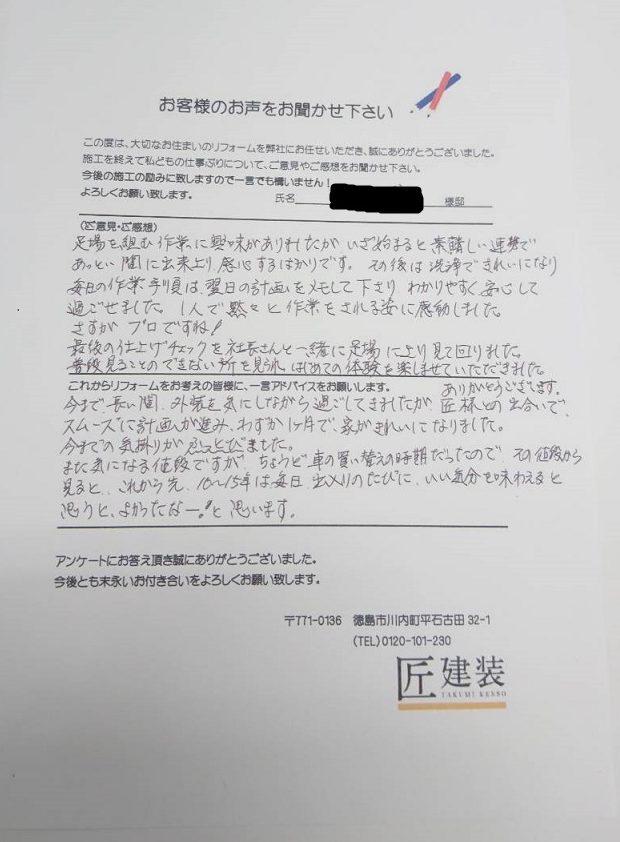 お客様のお声をお聞かせ下さい
この度は、大切なお住まいのリフォームを弊社にお任せいただき、誠にありがとうございました。
施工を終えて私どもの仕事ぶりについて、ご意見やご感想をお聞かせ下さい。
今後の施工の励みに致しますので一言でも構いません！
よろしくお願い致します。
氏名 様邸
(ご意見・ご感想)
足場を組む作業に興味がありましたが いざ始まると素晴しい連携で
あっとい間に出来上り感心するばかりです。 その後は洗浄できれいになり
毎日の作業手順は翌日の計画をメモして下さり わかりやすく安心して
過ごせました。 1人で黙々と作業をされる姿に感動しました。
さすが プロですね！
最後の仕上げチェックを社長さんと一緒に足場に上り見て回りました。
普段見ることのできない所を見られ はじめての体験を楽しませていただきました。
ありがとうございます。
これからリフォームをお考えの皆様に、一言アドバイスをお願いします。
今まで長い間、外装を気にしながら過ごしてきましたが 匠様との出合いで、
スムーズに計画が進み、わずか1ヶ月で家がきれいになりました。
今までの気掛りが ふっとびました。
また気になる値段ですが、ちょうど車の買い替えの時期だったので その値段から
見ると、これから先、10〜15年は毎日出入りのたびに、いい気分を味わえると
思うと、よかったなー！と思います。
アンケートにお答え頂き誠にありがとうございました。
今後とも末永いお付き合いをよろしくお願い致します。
〒771-0136 徳島市川内町平石古田 32-1
(TEL)0120-101-230
匠建装
TAKUMI KENSO